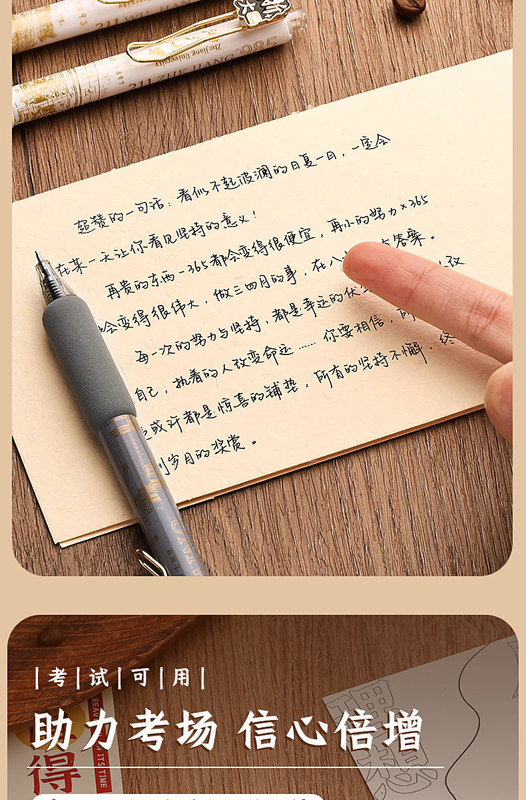 浙大
Zhe Jiang University
211 ZHE JIANG 985
超赞的一句话：看似不起波澜的日复一日，一定会
在某一天让你看见坚持的意义！
再贵的东西÷365都会变得很便宜，再小的努力×365
会变得很伟大，做三四月的事，在八 答案。
每一次的努力与坚持，都是幸运的伏 改
自己，执着的人改变命运……你要相信，所
或许都是惊喜的铺垫，所有的坚持不懈，终
到岁月的奖赏。
|考|试|可|用|
助力考场 信心倍增
得
ITS TIME
理想